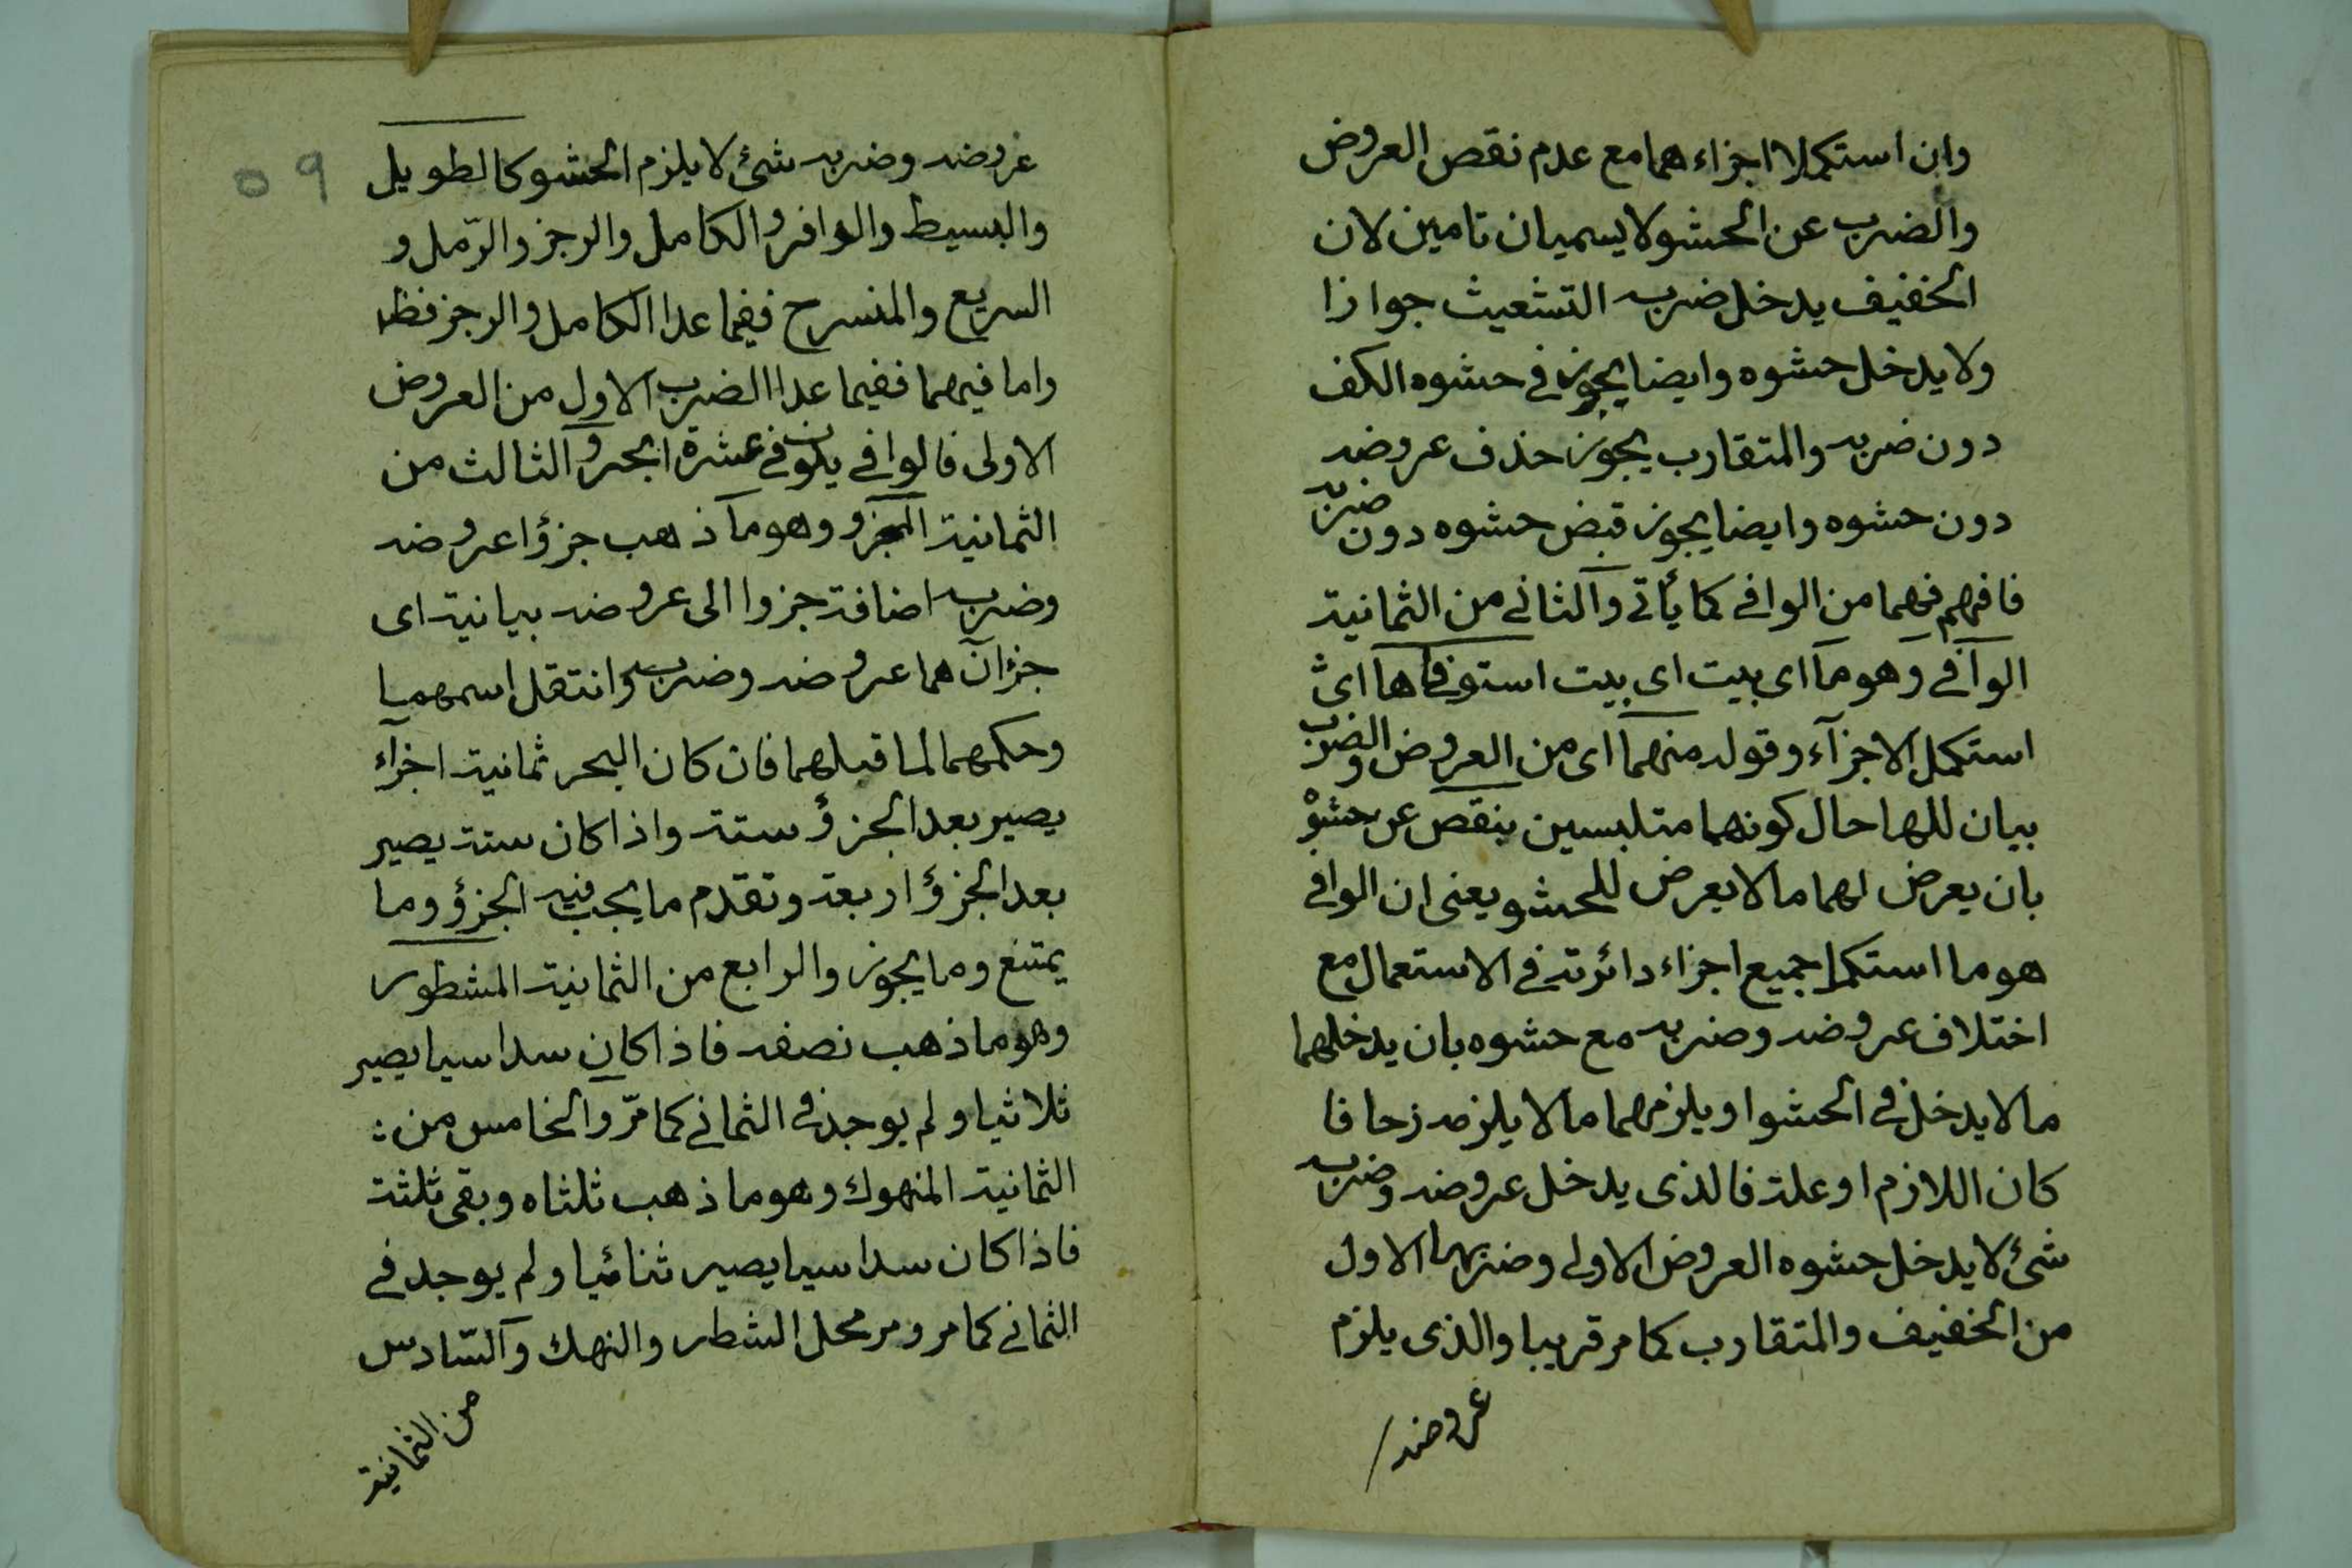 وان استكملا اجزاءهما مع عدم نقص العروض
والضرب عن الحشو لا يسميان تامين لان
الخفيف يدخل ضربه التشعيث جوازا
ولا يدخل حشوه وايضا يجوز في حشوه الكف
دون ضربه والمتقارب يجوز حذف عروضه
دون حشوه وايضا يجوز قبض حشوه دون ضربه
فافهم فهما من الوافي كما يأتي والثاني من الثمانية
الوافي وهو ما اى بيت اى بيت استوفاها اى
استكمل الاجزآء وقوله منهما اى من العروض والضرب
بيان للها حال كونهما متلبسين بنقص عن حشو
بان يعرض لهما ما لا يعرض للحشو يعنى ان الوافي
هو ما استكمل جميع اجزاء دائرته في الاستعمال مع
اختلاف عروضه وضربه مع حشوه بان يدخلهما
ما لا يدخل في الحشو او يلزمهما ما لا يلزمه زحافا
كان اللازم او علة فالذى يدخل عروضه وضربه
شئ لا يدخل حشوه العروض الاولى وضربها الاول
من الخفيف والمتقارب كما مر قريبا والذى يلزم
عروضه
٥٩
عروضه وضربه شئ لا يلزم الحشو كالطويل
والبسيط والوافر والكامل والرجز والرّمل و
السريع والمنسرح ففيما عدا الكامل والرجز فظ
واما فيهما ففيما عدا الضرب الاول من العروض
الاولى فالوافي يكون في عشرة ابحر والثالث من
الثمانية المجزو وهو ما ذهب جزؤا عروضه
وضربه اضافة جزوا الى عروضه بيانية اى
جزآن هما عروضه وضربه وانتقل اسمهما
وحكمهما لما قبلهما فان كان البحر ثمانية اجزآء
يصير بعد الجزؤ ستة واذا كان ستة يصير
بعد الجزؤ اربعة وتقدم ما يجب فيه الجزؤ وما
يمتنع وما يجوز والرابع من الثمانية المشطور
وهو ما ذهب نصفه فاذا كان سداسيا يصير
ثلاثيا ولم يوجد في الثماني كما مرّ والخامس من :
الثمانية المنهوك وهو ما ذهب ثلثاه وبقى ثلثة
فاذا كان سداسيا يصير ثنائيا ولم يوجد في
الثماني كما مر ومر محل الشطر والنهك والسّادس
من الثمانية